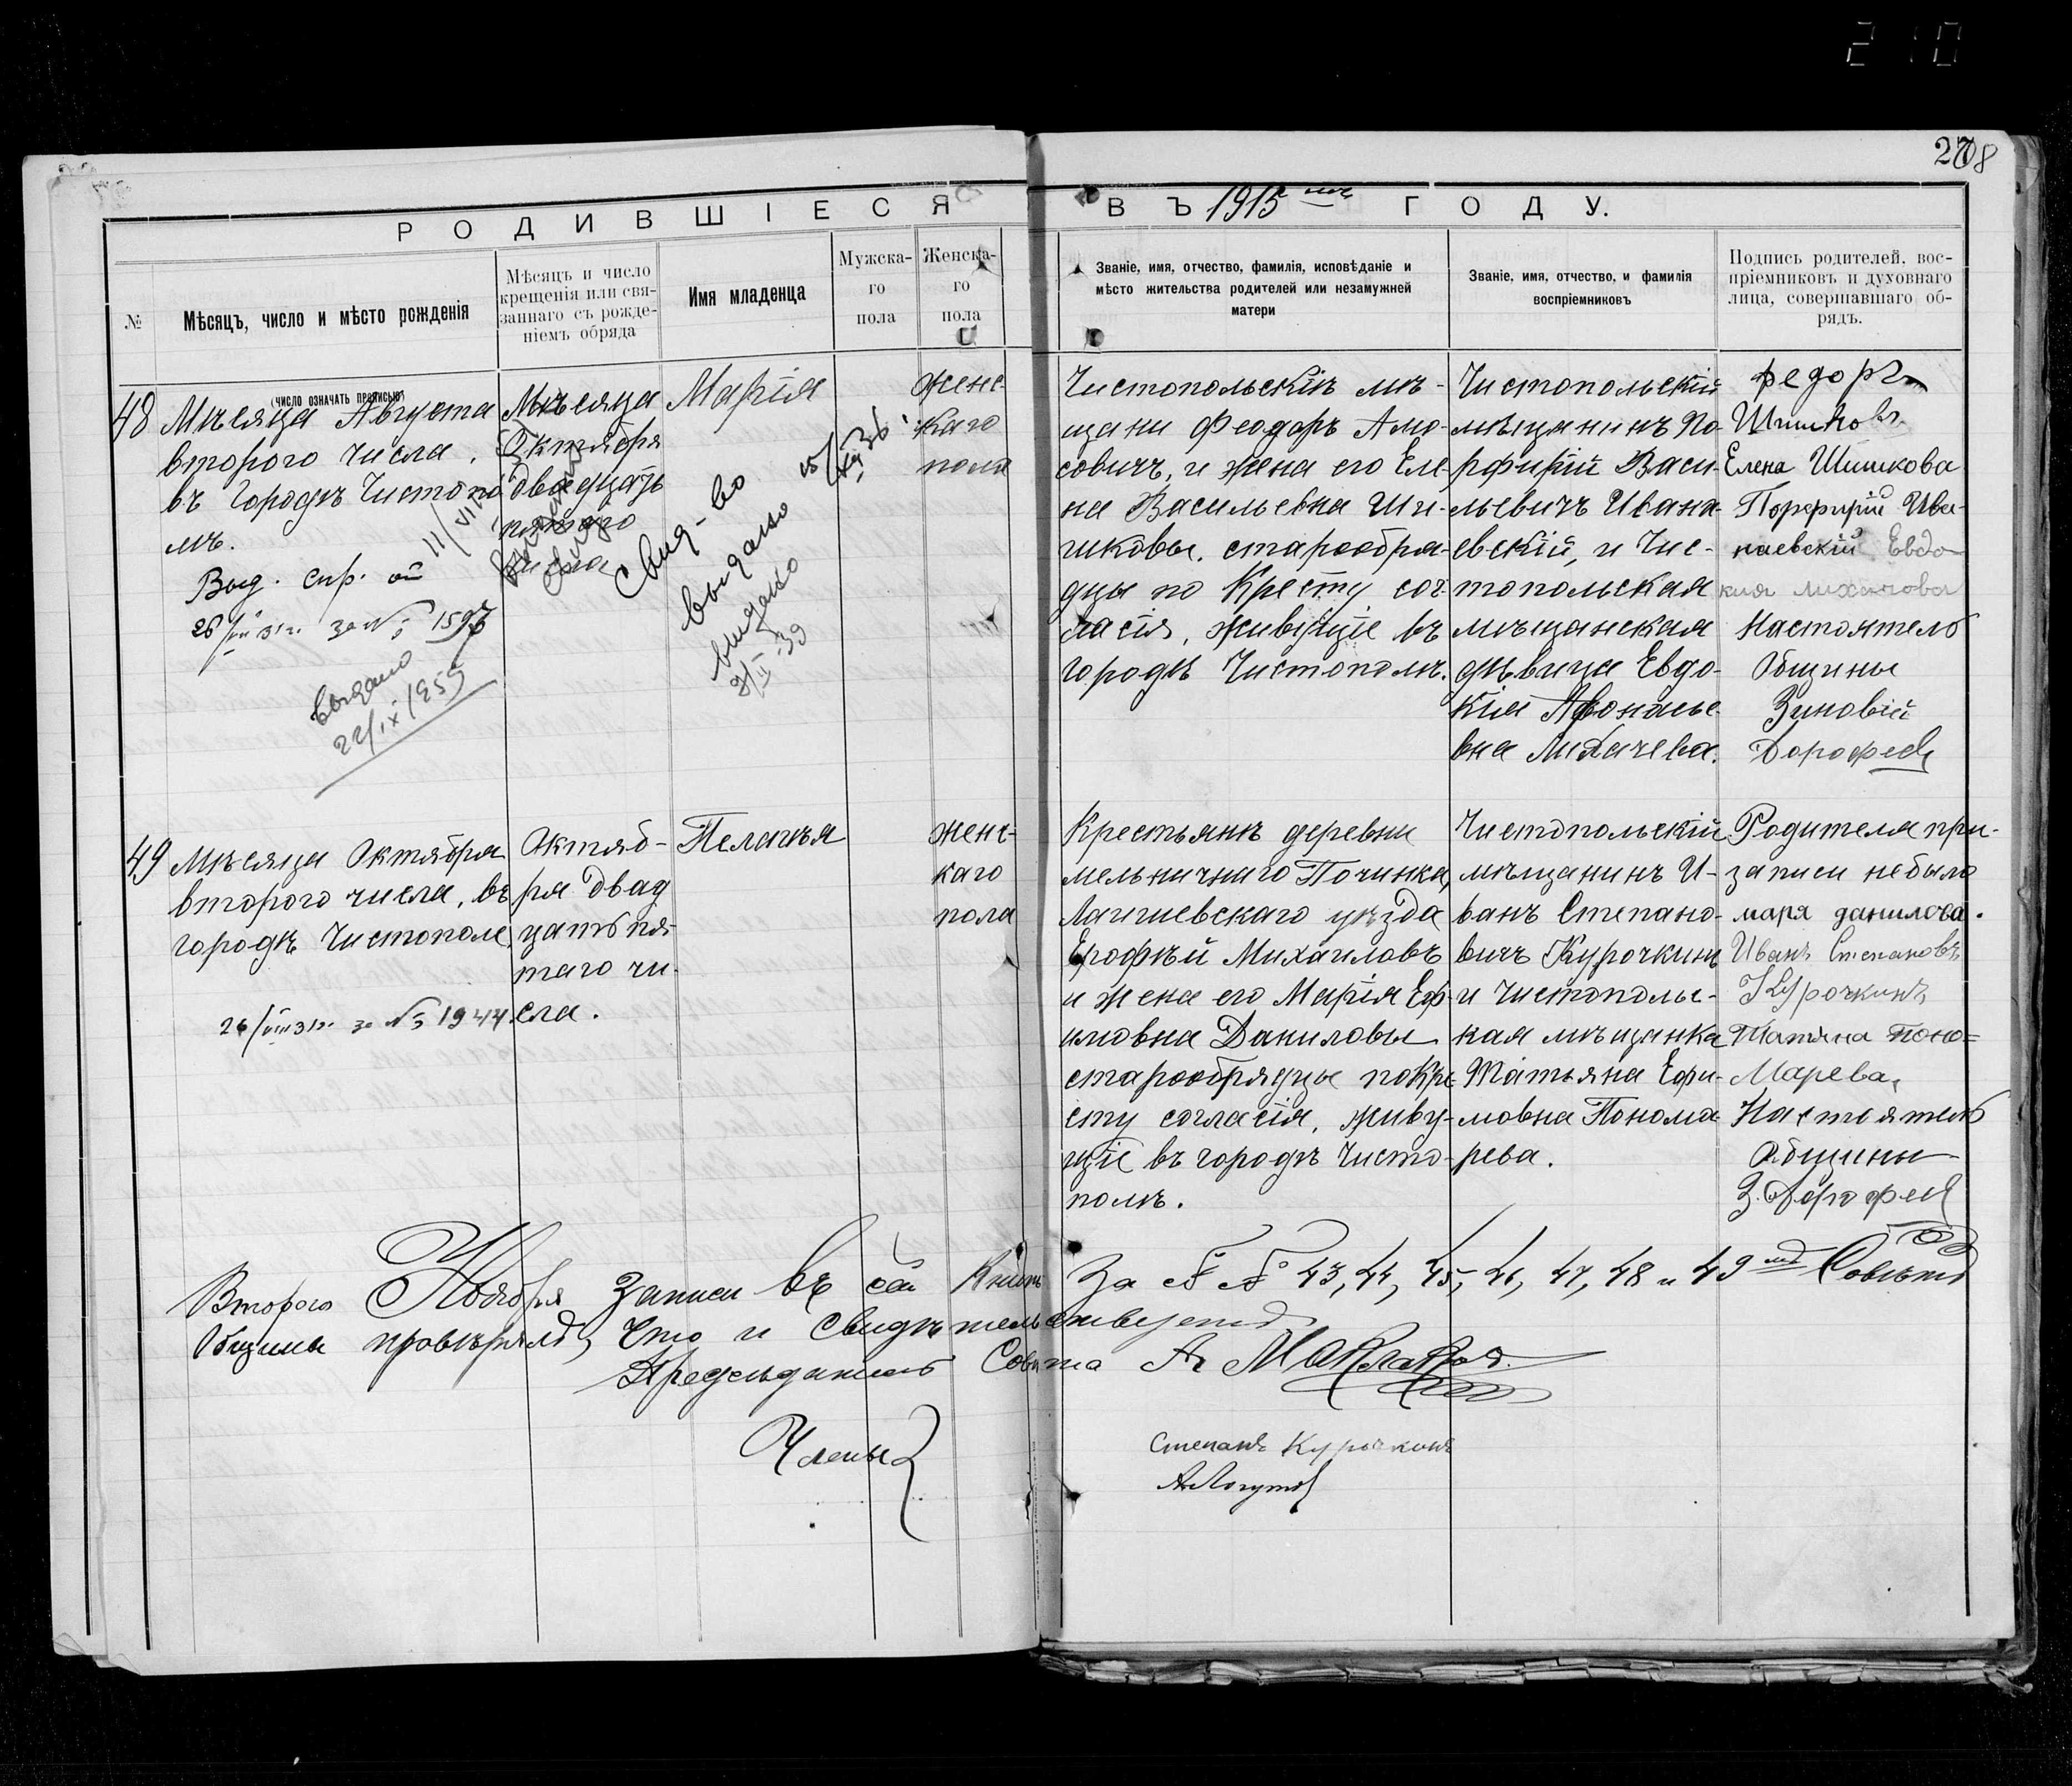 210
27
208
РОДИВШІЕСЯ
ВЪ 1915 мъ ГОДУ.
№
Мѣсяцъ, число и мѣсто рожденія
Мѣсяцъ и число
крещенія или свя-
заннаго съ рожде-
ніемъ обряда
Имя младенца
Мужска-
го
пола
Женска-
го
пола
Званіе, имя, отчество, фамилія, исповѣданіе и
мѣсто жительства родителей или незамужней
матери
Званіе, имя, отчество, и фамилія
воспріемниковъ
Подпись родителей, вос-
пріемниковъ и духовнаго
лица, совершавшаго об-
рядъ.
(число означать прописью)
48
Мѣсяца Августа
второго числа,
въ городѣ Чистопо
лѣ.
Выд. спр. от
26/VIII 31 г. за № 1597
выдано
22/IX 1959
11/VI
Мѣсяца
Октября
двадцать
пятаго
числа
Марія
Свид-во
выдано
15/XII 36
выдано
женс-
каго
пола
Чистопольскіѣ мѣ-
щани Феодоръ Амо-
совичъ, и жена его Еле-
на Васильевна Ши-
шковы, старообря-
дцы по Кресту сог-
ласія, живущіе въ
городѣ Чистополѣ.
Чистопольскій
мѣщанинъ По-
рфирій Васи-
льевичъ Ивана-
евскій, и Чис-
топольская
мѣщанская
дѣвица Евдо-
кия Афонасье-
вна Лихачева.
Федоръ
Шишковъ
Елена Шишкова
Порфирій Ива-
наевскій Евдо-
кия Лихачова
Настоятель
Общины
Зиновій
Дорофеев
49
Мѣсяца Октября
второго числа, въ
городѣ Чистополе
26/VIII 31 г. за № 1944
Октяб-
ря двад
цать пя-
таго чи-
сла.
Пелагѣя
женс-
каго
пола
Крестьянѣ деревни
мельничнаго Починка,
Лаишевскаго уѣзда
Ерофѣй Михаиловъ
и жена его Марія Еф-
имовна Даниловы
старообрядцы по Кре-
сту согласія, живу-
щіе въ городѣ Чисто-
полѣ.
Чистопольскій
мѣщанинъ И-
ванъ Степано-
вичъ Курочкинъ
и Чистопольс-
кая мѣщанка
Татьяна Ефи-
мовна Понома-
рева.
Родителя при-
записи небыло
маря данилова.
Иванъ Степановъ
Курочкинъ
Татяна Поно=
Марева,
Настоятель
Общины
З. Дорофеев
Второго Ноября Записи въ сей Книгѣ За №№ 43, 44, 45, 46, 47, 48 и 49 мъ Совѣтъ
Общины провѣрялъ, что и свидѣтельствуетъ
Предсѣдатель Совѣта А. Маклаков
Члены
Степанъ Курочкинъ
А. Логутов